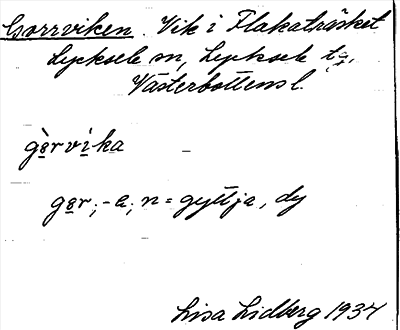 Gorrviken. Vik i Flakaträsket
Lycksele sn, Lycksele tg,
Västerbottens l.
gòrvika
gor, -a, n = gyttja, dy
Lisa Lidberg 1934